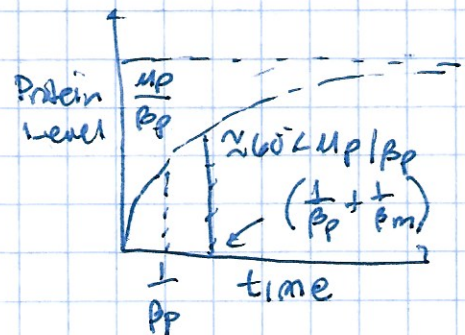 Protein
Level
μp
βp
< μp/βp
(1/βp + 1/βm)
1
βp
time